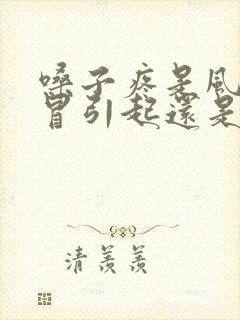 嗓子疼是風
冒引起還是
清羨羨